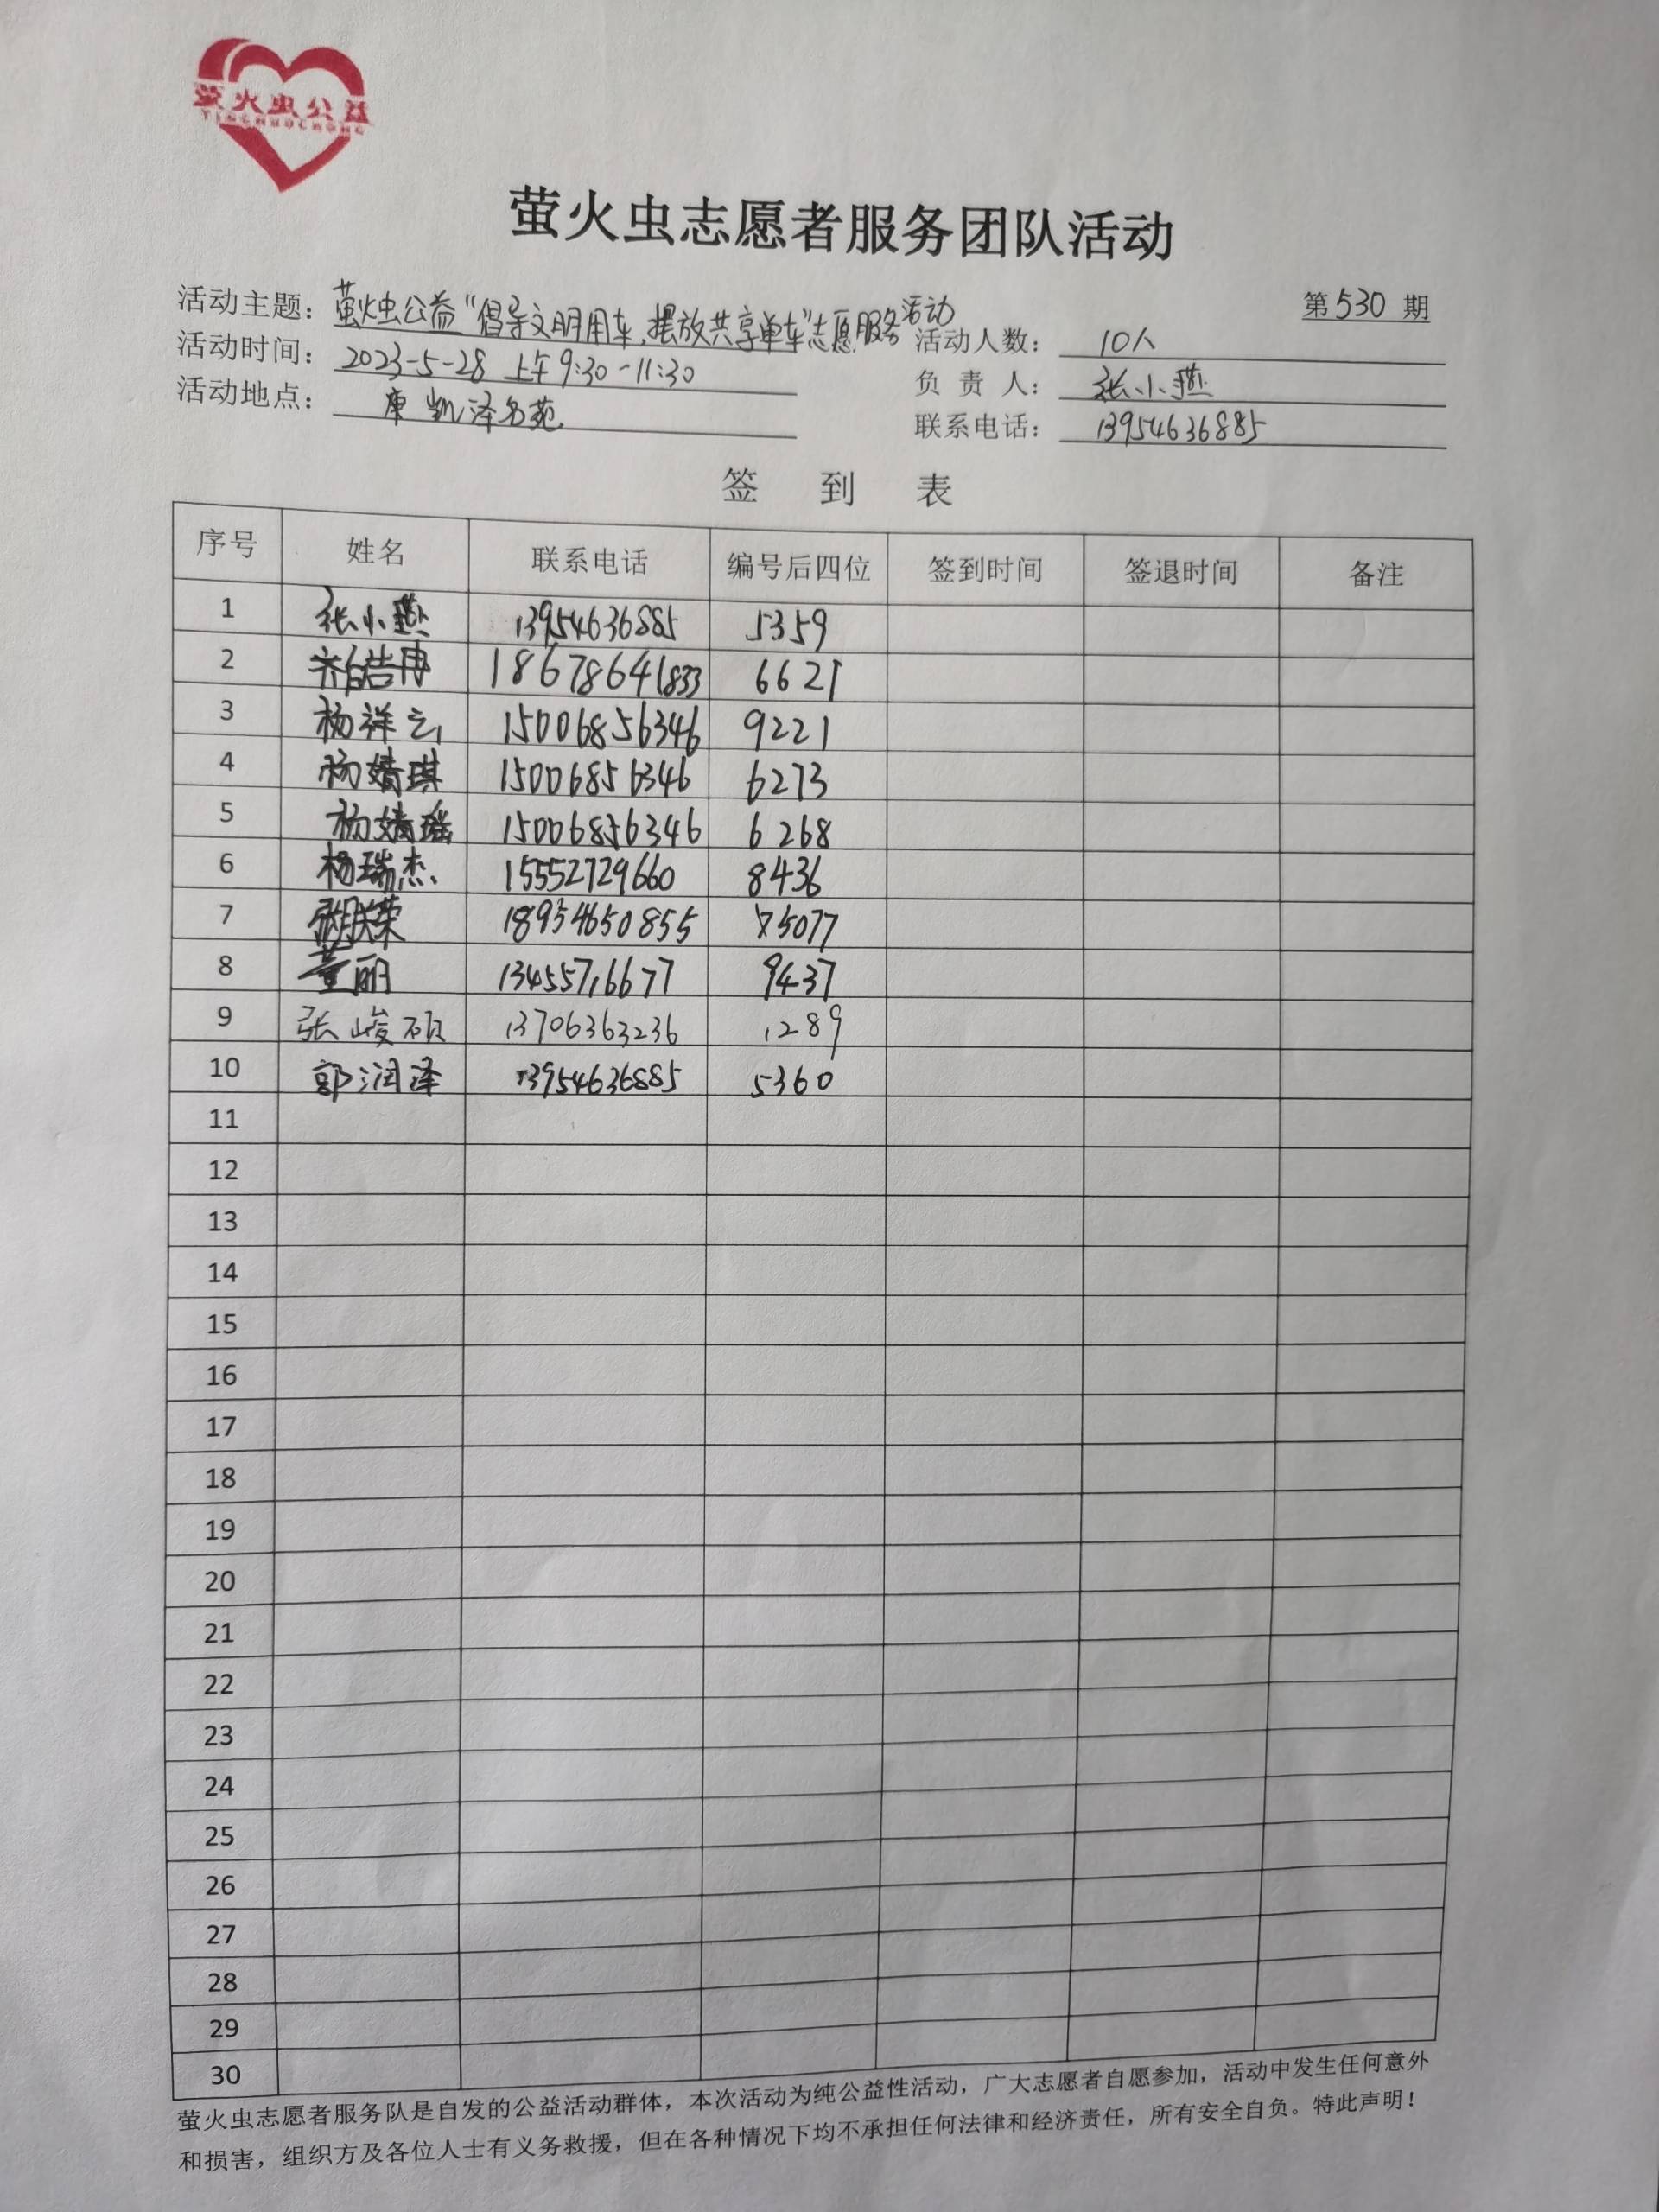 萤火虫公益
YINGHUOCHONG
萤火虫志愿者服务团队活动
第530 期
活动主题：萤火虫公益“倡导文明用车，摆放共享单车”志愿服务活动
活动时间：2023-5-28 上午9:30-11:30 活动人数：10人
活动地点：凯泽名苑 负 责 人：张小燕
联系电话：13954636885
签 到 表
序号 姓名 联系电话 编号后四位 签到时间 签退时间 备注
1 张小燕 13954636885 5359
2 18678641833 6621
3 杨祥云 15006856346 9221
4 杨婧琪 15006856346 6273
5 杨婧瑶 15006856346 6268
6 杨瑞杰 15552729660 8436
7 18954650855 5077
8 董丽 13455716677 9437
9 张峻硕 13706363236 1289
10 郭润泽 13954636885 5360
11
12
13
14
15
16
17
18
19
20
21
22
23
24
25
26
27
28
29
30
萤火虫志愿者服务队是自发的公益活动群体，本次活动为纯公益性活动，广大志愿者自愿参加，活动中发生任何意外
和损害，组织方及各位人士有义务救援，但在各种情况下均不承担任何法律和经济责任，所有安全自负。特此声明！